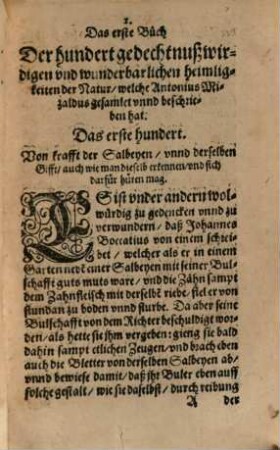 1.
Das erste Büch
Der hundert gedechtnußwir-
digen vnd wunderbarlichen heimlig-
keiten der Natur / welche Antonius Mi-
zaldus gesamlet vnnd beschrie-
ben hat.
Das erste hundert.
Von krafft der Salbeyen / vnnd derselben
Gifft / auch wie man dieselb erkennen / vnd sich
darfür hüten mag.
ES ist vnder andern wol-
würdig zu gedencken vnnd zu
verwundern / daß Johannes
Boccatius von einem schrei-
bet / welcher als er in einem
Garten nebe einer Salbeyen mit seiner Bul-
schafft guts muts ware / vnd die Zähn sampt
dem Zahnfleisch mit derselbē riebe / fiel er von
stundan zu boden vnnd sturbe. Da aber seine
Bulschafft von dem Richter beschuldigt wor-
den / als hette sie jhm vergeben: gieng sie bald
dahin sampt etlichen Zeugen / vnd brach eben
auch die Bletter von derselben Salbeyen ab /
vnnd bewiese damit / daß jhr Buler eben auff
solche gestalt / wie sie daselbst / durch reibung
A der